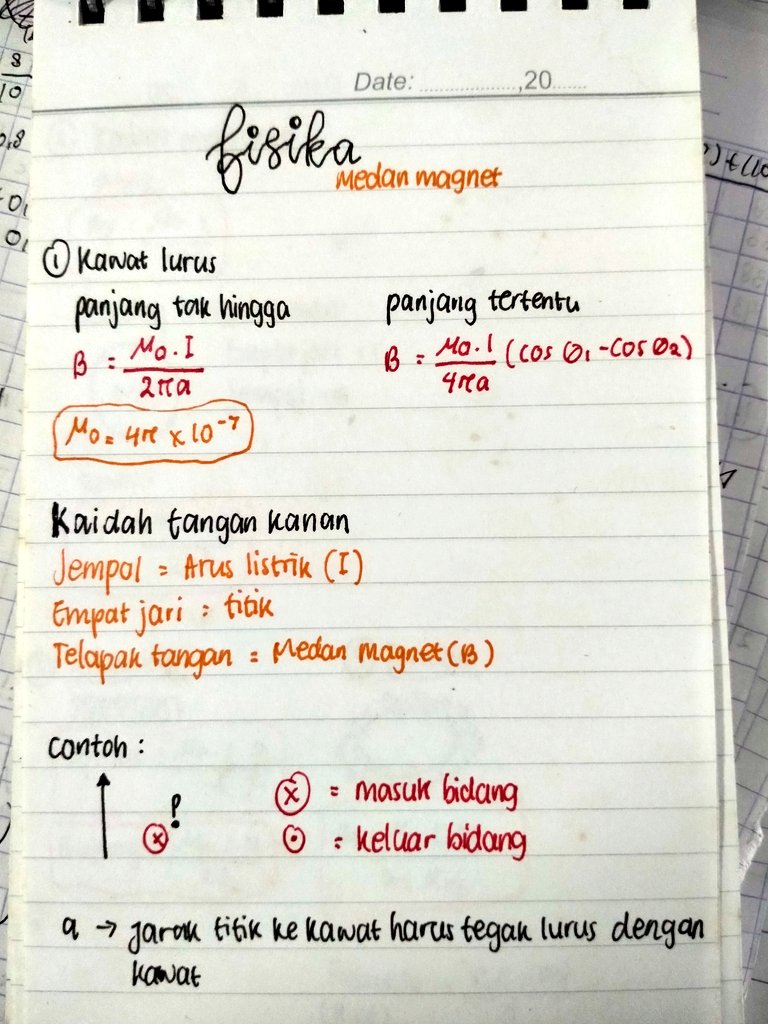 Date: ..................,20......
fisika
Medan magnet
① Kawat lurus
panjang tak hingga
B = μ₀ . I / 2πa
μ₀ = 4π × 10⁻⁷
panjang tertentu
B = μ₀ . I / 4πa (cos θ₁ - cos θ₂)
Kaidah tangan kanan
Jempol = Arus listrik (I)
Empat jari = titik
Telapak tangan = Medan magnet (B)
Contoh :
P
ⓧ = masuk bidang
⊙ = keluar bidang
a → jarak titik ke kawat harus tegak lurus dengan
kawat